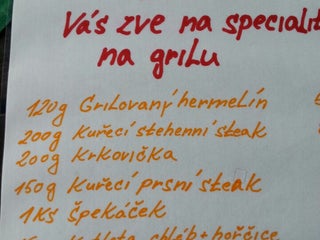 Vás zve na speciali
na grilu
120g Grilovaný hermelín
200g Kuřecí stehenní steak
200g Krkovička
150g Kuřecí prsní steak
1ks Špekáček
chléb + hořčice